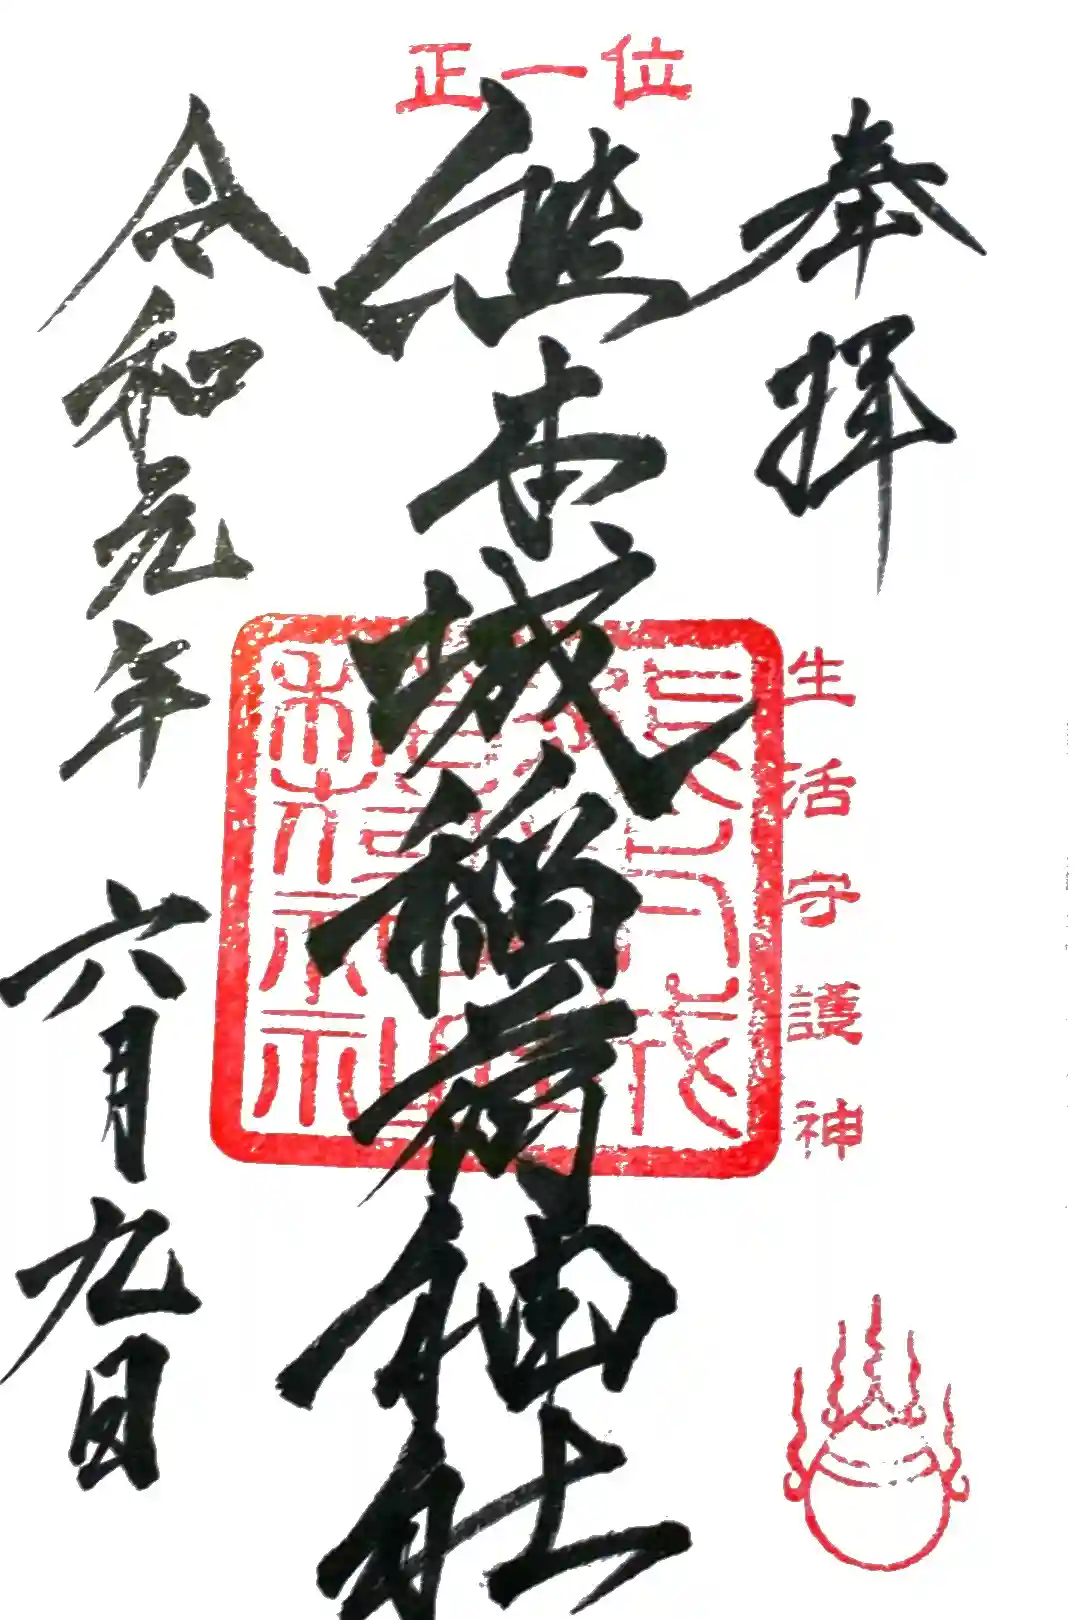 正一位
奉拝
生活守護神
熊本城稲荷神社
令和元年 六月九日